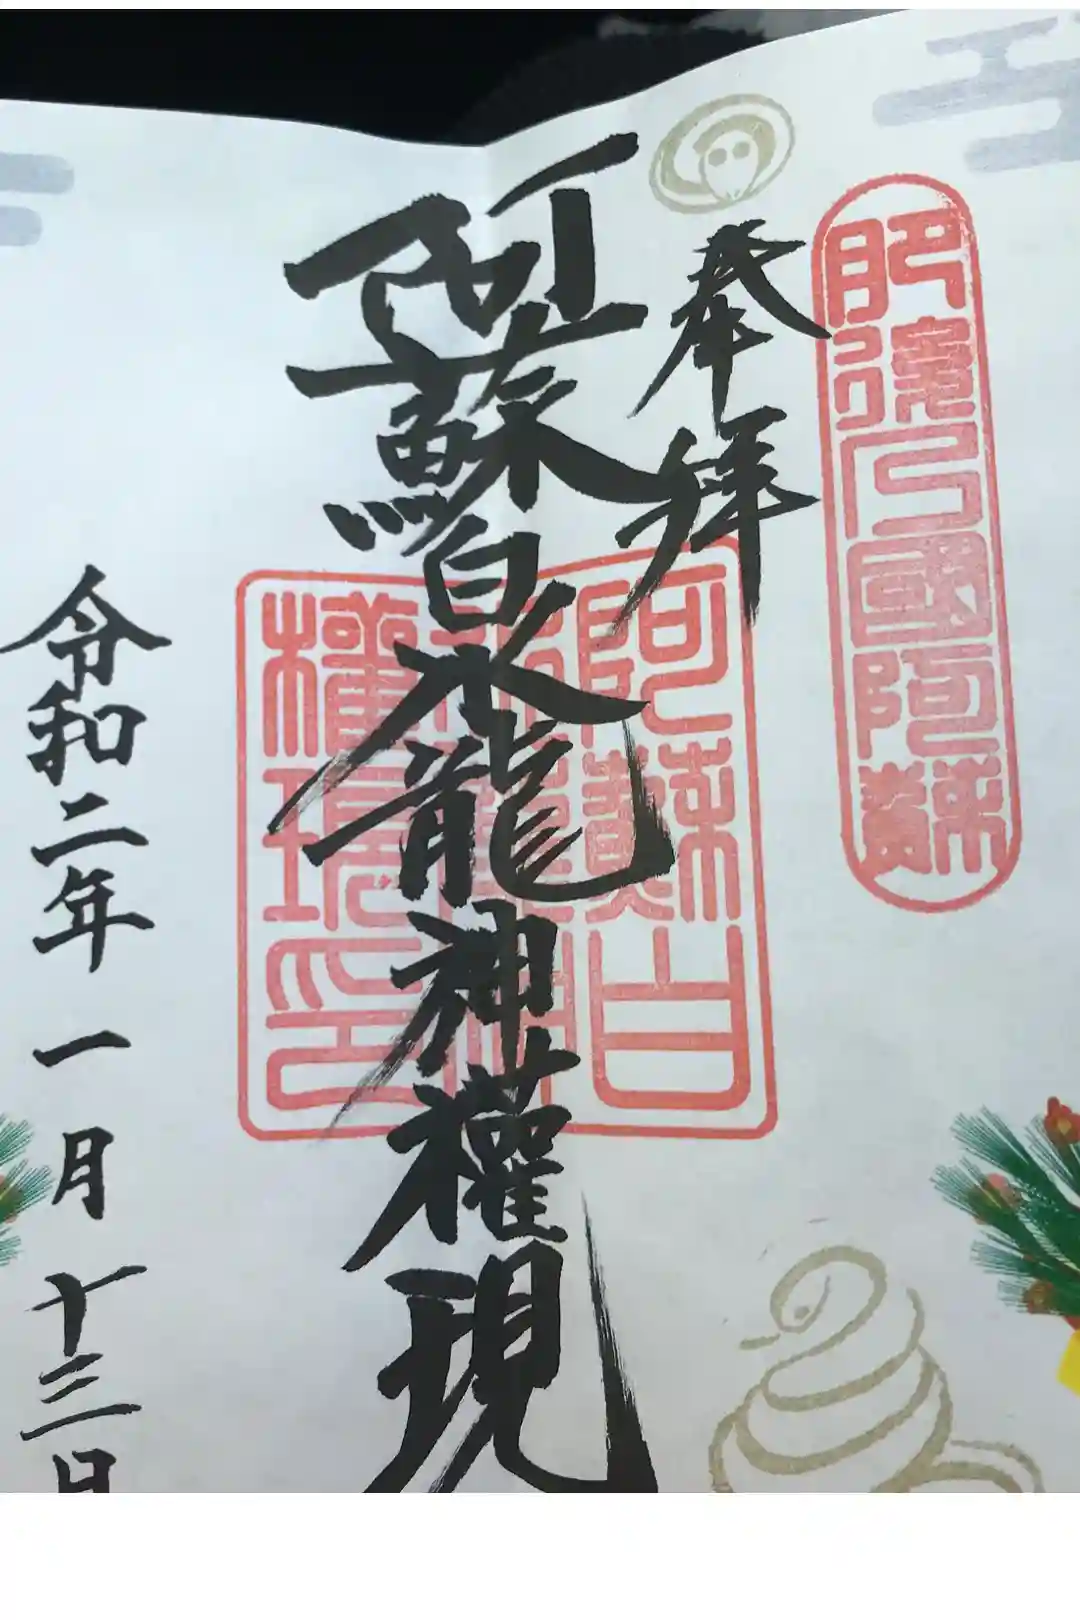 肥後乃國阿蘇
奉拜
阿蘇白水龍神權現
阿蘇白水龍神權現印
令和二年一月十三日